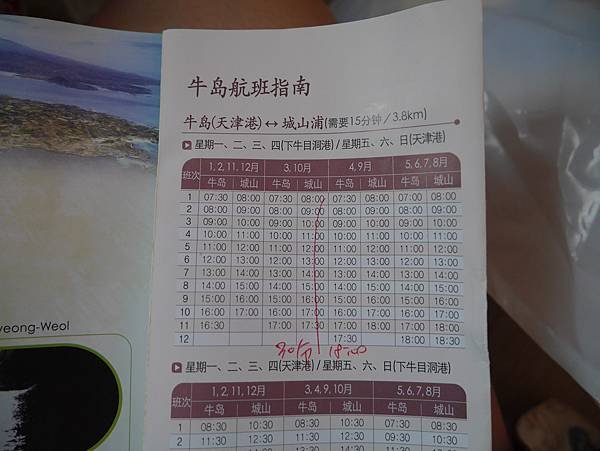 牛岛航班指南
牛岛(天津港)↔城山浦(需要15分钟/3.8km)
星期一、二、三、四(下牛目洞港)/星期五、六、日(天津港)
班次 1, 2, 11, 12月 3, 10月 4, 9月 5, 6, 7, 8月
牛岛 城山 牛岛 城山 牛岛 城山 牛岛 城山
1 07:30 08:00 07:30 08:00 07:30 08:00 07:00 08:00
2 08:00 09:00 08:00 09:00 08:00 09:00 08:00 09:00
3 09:00 10:00 09:00 10:00 09:00 10:00 09:00 10:00
4 10:00 11:00 10:00 11:00 10:00 11:00 10:00 11:00
5 11:00 12:00 11:00 12:00 11:00 12:00 11:00 12:00
6 12:00 13:00 12:00 13:00 12:00 13:00 12:00 13:00
7 13:00 14:00 13:00 14:00 13:00 14:00 13:00 14:00
8 14:00 15:00 14:00 15:00 14:00 15:00 14:00 15:00
9 15:00 16:00 15:00 16:00 15:00 16:00 15:00 16:00
10 16:00 17:00 16:00 17:00 16:00 17:00 16:00 17:00
11 16:30 17:00 17:30 17:00 18:00 17:00 18:00
12 17:30 18:00 18:30
18:00
星期一、二、三、四(天津港)/星期五、六、日(下牛目洞港)
班次 1, 2, 11, 12月 3, 4, 9, 10月 5, 6, 7, 8月
牛岛 城山 牛岛 城山 牛岛 城山
1 08:30 10:30 08:30 10:30 07:30 08:30
2 11:30 12:30 11:30 12:30 09:30 10:30
yeong-Weol